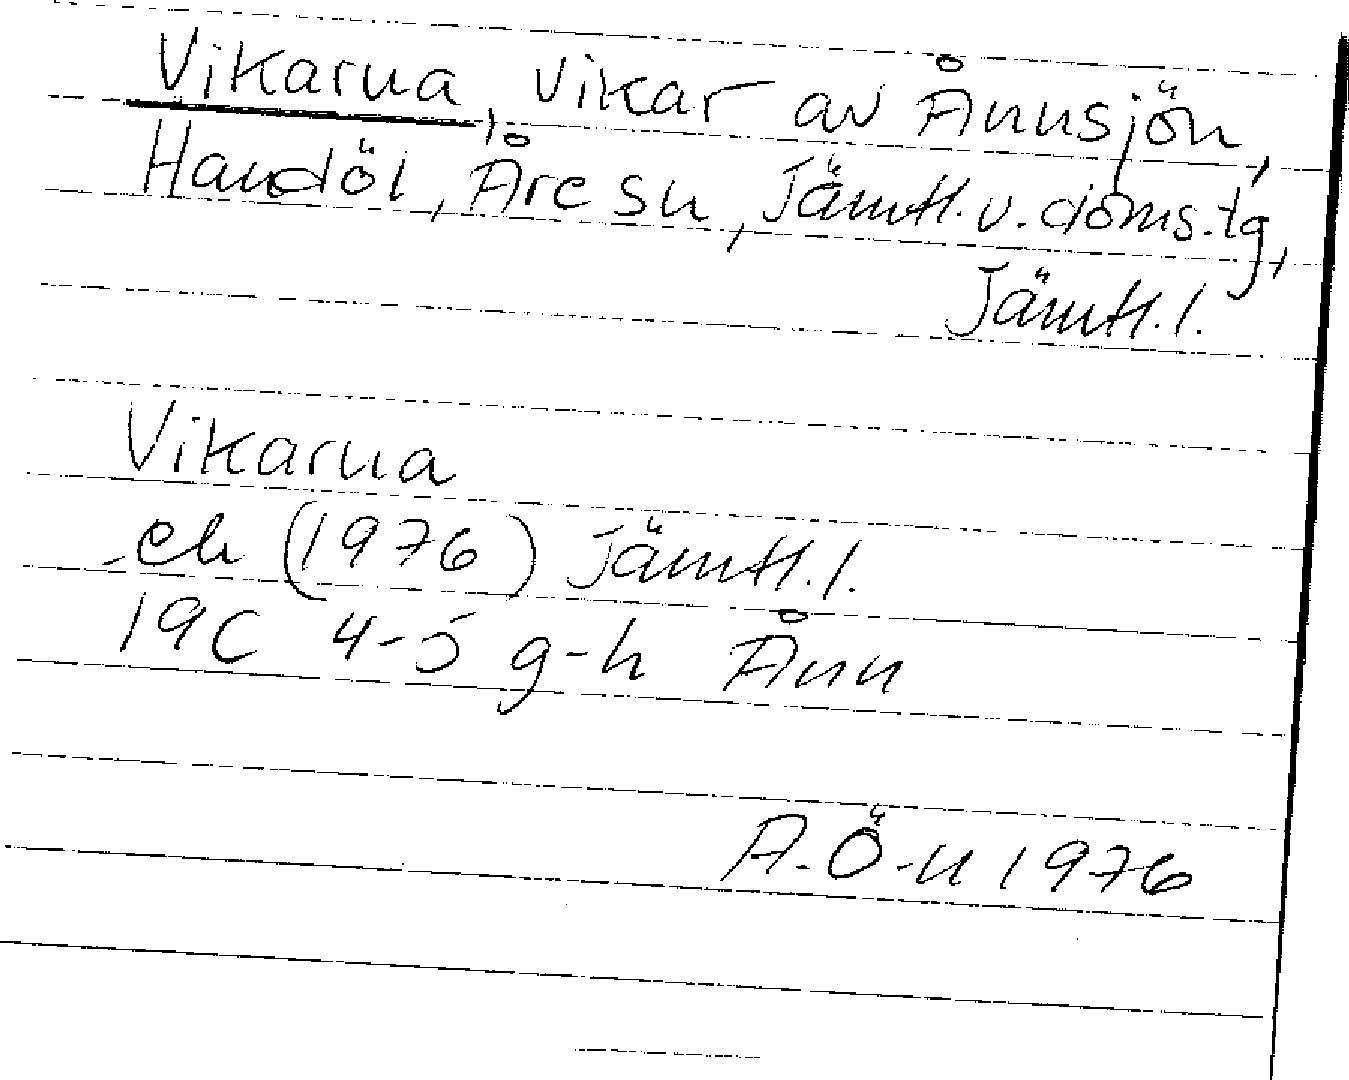 Vikarna, vikar av Ånnsjön,
Handöl, Åre sn, Jämtl. v. doms.tg,
Jämtl. l.
Vikarna
ek (1976) Jämtl. l.
19C 4-5 g-h Ånn
A. Ö-n 1976